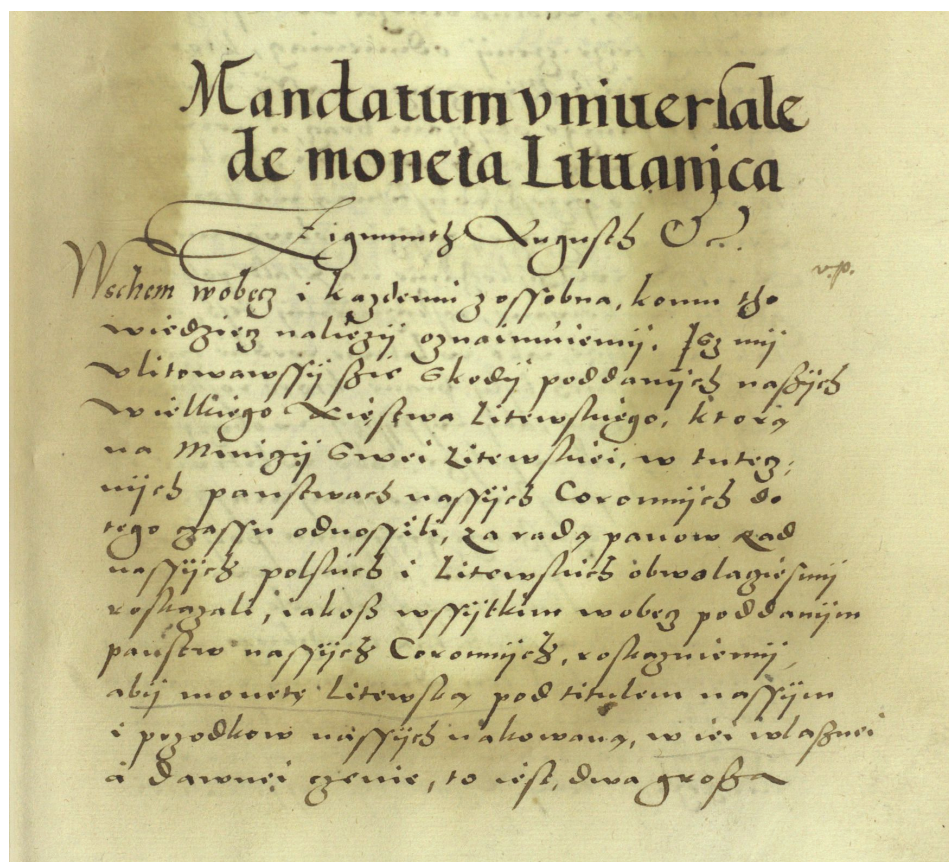 Mandatum vniuersale
de moneta Lituanica
Zigmunth August Etc.
v.p.
Wschem wobecz i kazdemu z ossobna, komu tho
wiedziecz naliezÿ oznaimuiemÿ. Isz mÿ
vlitowawssÿ szie skodÿ poddanÿch naßÿch
wielkiego Xięstwa Litewskiego, którą
na Minczÿ swei Litewskiei, w tutecz,
nÿch panstwach nassÿch Coronnÿch do
tego czassu odnossili, za radą panow Rad
nassÿch polskich i Litewskich obwolaciesmÿ
roskazali, iakoß wssÿtkim wobecz poddanÿm
państw nassÿch Coronnÿch, roskazuiemÿ
abÿ monetę Litewską pod titulem nassÿm
i przodkow nassÿch ukowaną, w iei wlaßnei
a dawnei czenie, to iest, dwa großa